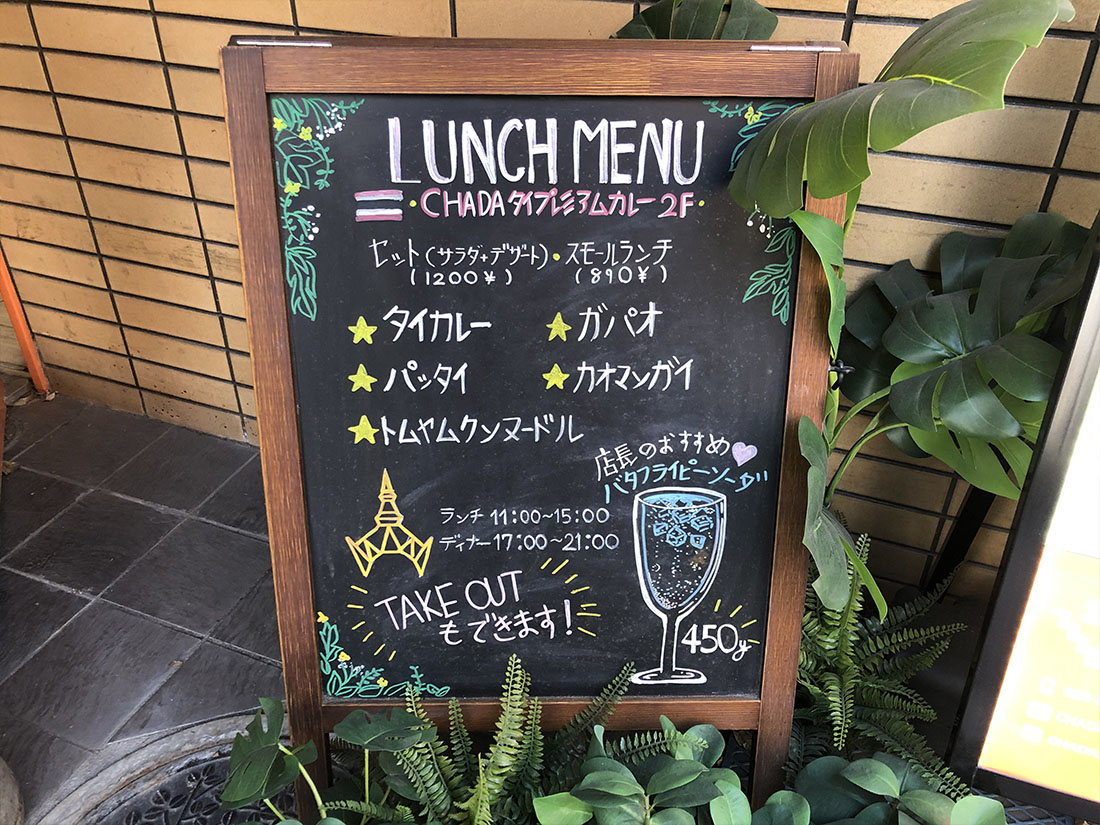 LUNCH MENU
・CHADAタイプレミアムカレー 2F・
セット(サラダ+デザート)・スモールランチ
(1200¥) (890¥)
★タイカレー ★ガパオ
★パッタイ ★カオマンガイ
★トムヤムクンヌードル
店長のおすすめ
バタフライピーソーダ
ランチ 11:00~15:00
ディナー 17:00~21:00
TAKE OUT
もできます!
450y
CHADA